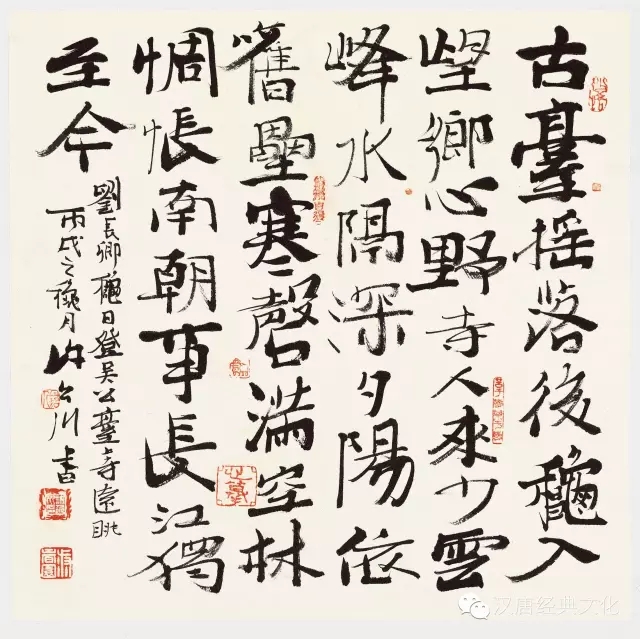 古臺摇落後龝入
望鄉心野寺人來少雲
峰水隔深夕陽依
舊壘寒磬满空林
惆悵南朝事長江獨
至今
劉長卿龝日登吴公臺寺遠眺
丙戌之龝月 川書
汉唐经典文化